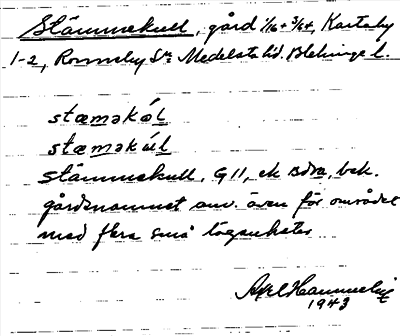 Stämmekull, gård 1/16 + 3/64, Kartaby
1-2, Ronneby Sn Medelsta hd. Blekinge l.
stæməkól
stæməkúl
Stämmekull, G 11, ek Bdra, bek.
gårdsnamnet anv. även för området
med flera små lägenheter
Axel Hammelin
1943